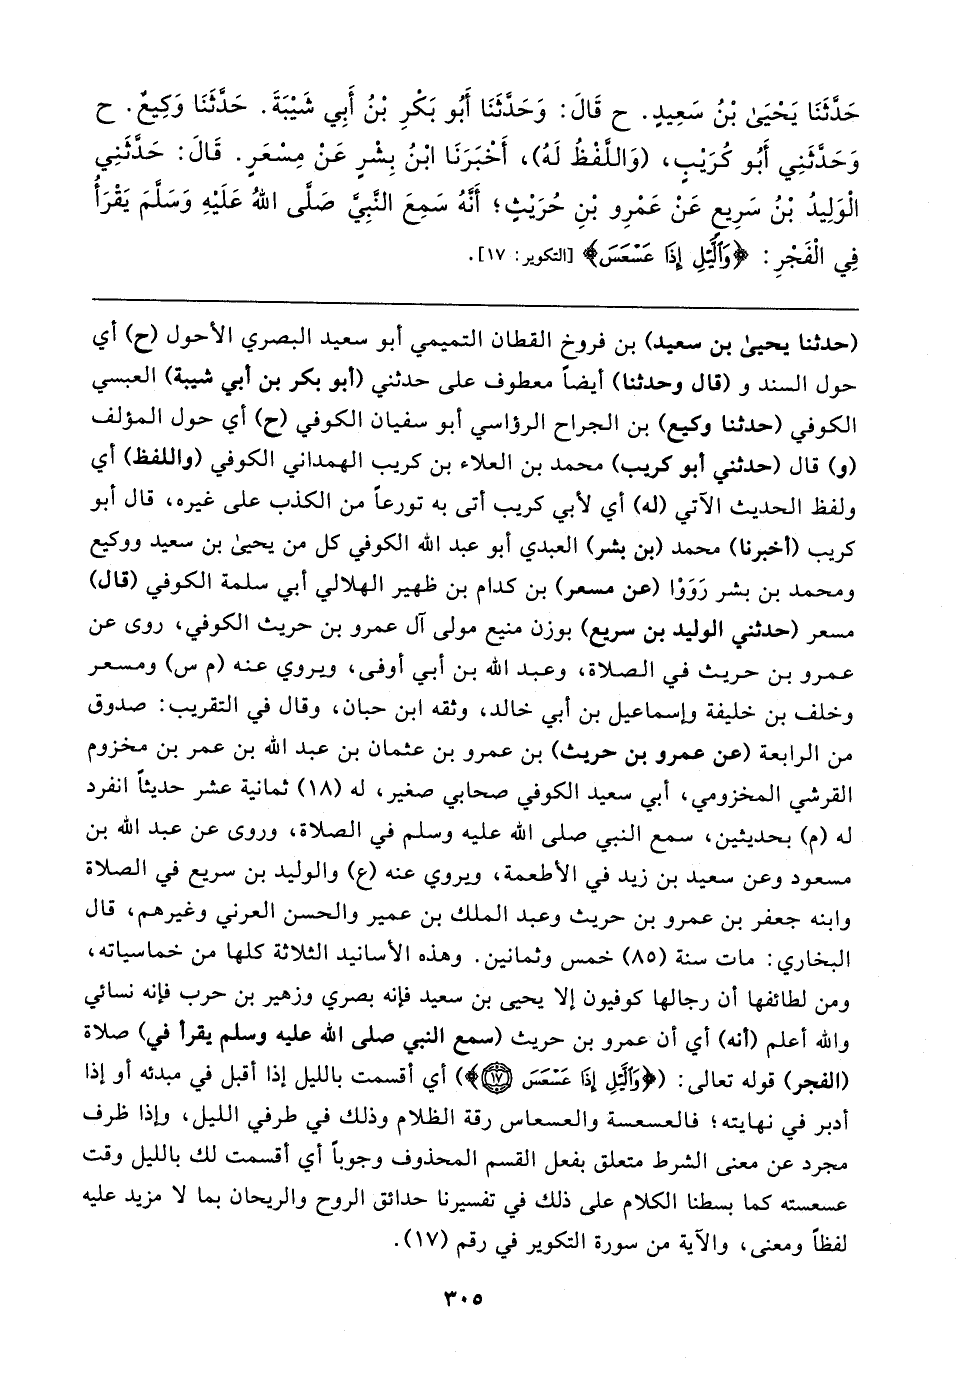 حَدَّثَنَا يَحْيَىٰ بْنُ سَعِيدٍ. ح قَالَ: وَحَدَّثَنَا أَبُو بَكْرِ بْنُ أَبِي شَيْبَةَ. حَدَّثَنَا وَكِيعٌ. ح
وَحَدَّثَنِي أَبُو كُرَيْبٍ، (وَاللَّفْظُ لَهُ)، أَخْبَرَنَا ابْنُ بِشْرٍ عَنْ مِسْعَرٍ. قَالَ: حَدَّثَنِي
الْوَلِيدُ بْنُ سَرِيعٍ عَنْ عَمْرِو بْنِ حُرَيْثٍ؛ أَنَّهُ سَمِعَ النَّبِيَّ صَلَّى اللهُ عَلَيْهِ وَسَلَّمَ يَقْرَأُ
فِي الْفَجْرِ: ﴿وَٱلَّيْلِ إِذَا عَسْعَسَ﴾ [التكوير: ١٧].
(حدثنا يحيىٰ بن سعيد) بن فروخ القطان التميمي أبو سعيد البصري الأحول (ح) أي
حول السند و (قال وحدثنا) أيضاً معطوف على حدثني (أبو بكر بن أبي شيبة) العبسي
الكوفي (حدثنا وكيع) بن الجراح الرؤاسي أبو سفيان الكوفي (ح) أي حول المؤلف
(و) قال (حدثني أبو كريب) محمد بن العلاء بن كريب الهمداني الكوفي (واللفظ) أي
ولفظ الحديث الآتي (له) أي لأبي كريب أتى به تورعاً من الكذب على غيره، قال أبو
كريب (أخبرنا) محمد (بن بشر) العبدي أبو عبد الله الكوفي كل من يحيىٰ بن سعيد ووكيع
ومحمد بن بشر رَوَوْا (عن مسعر) بن كدام بن ظهير الهلالي أبي سلمة الكوفي (قال)
مسعر (حدثني الوليد بن سريع) بوزن منيع مولى آل عمرو بن حريث الكوفي، روى عن
عمرو بن حريث في الصلاة، وعبد الله بن أبي أوفى، ويروي عنه (م س) ومسعر
وخلف بن خليفة وإسماعيل بن أبي خالد، وثقه ابن حبان، وقال في التقريب: صدوق
من الرابعة (عن عمرو بن حريث) بن عمرو بن عثمان بن عبد الله بن عمر بن مخزوم
القرشي المخزومي، أبي سعيد الكوفي صحابي صغير، له (١٨) ثمانية عشر حديثاً انفرد
له (م) بحديثين، سمع النبي صلى الله عليه وسلم في الصلاة، وروى عن عبد الله بن
مسعود وعن سعيد بن زيد في الأطعمة، ويروي عنه (ع) والوليد بن سريع في الصلاة
وابنه جعفر بن عمرو بن حريث وعبد الملك بن عمير والحسن العرني وغيرهم، قال
البخاري: مات سنة (٨٥) خمس وثمانين. وهذه الأسانيد الثلاثة كلها من خماسياته،
ومن لطائفها أن رجالها كوفيون إلا يحيى بن سعيد فإنه بصري وزهير بن حرب فإنه نسائي
والله أعلم (أنه) أي أن عمرو بن حريث (سمع النبي صلى الله عليه وسلم يقرأ في) صلاة
(الفجر) قوله تعالى: (﴿وَٱلَّيْلِ إِذَا عَسْعَسَ ١٧﴾) أي أقسمت بالليل إذا أقبل في مبدئه أو إذا
أدبر في نهايته؛ فالعسعسة والعسعاس رقة الظلام وذلك في طرفي الليل، وإذا ظرف
مجرد عن معنى الشرط متعلق بفعل القسم المحذوف وجوباً أي أقسمت لك بالليل وقت
عسعسته كما بسطنا الكلام على ذلك في تفسيرنا حدائق الروح والريحان بما لا مزيد عليه
لفظاً ومعنى، والآية من سورة التكوير في رقم (١٧).
٣٠٥